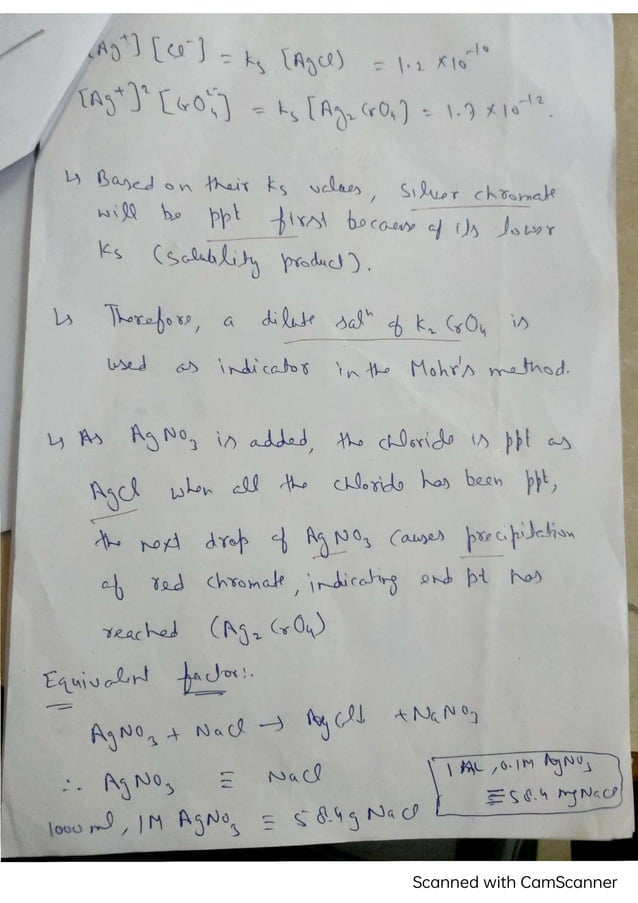 [Ag⁺] [Cl⁻] = Ks (AgCl) = 1.2 × 10⁻¹⁰
[Ag⁺]² [CrO₄²⁻] = Ks [Ag₂CrO₄] = 1.7 × 10⁻¹².
↳ Based on their Ks values, Silver chromate
will be ppt first because of its lower
Ks (Solubility product).
↳ Therefore, a dilute solⁿ of K₂CrO₄ is
used as indicator in the Mohr's method.
↳ As AgNO₃ is added, the chloride is ppt as
AgCl when all the chloride has been ppt,
the next drop of AgNO₃ causes precipitation
of red chromate, indicating end pt has
reached (Ag₂CrO₄)
Equivalent factor:.
AgNO₃ + NaCl → AgCl↓ + NaNO₃
∴ AgNO₃ ≡ NaCl
1000 ml, 1M AgNO₃ ≡ 58.4g NaCl
1 ML, 0.1M AgNO₃
≡ 58.4 mg NaCl
Scanned with CamScanner